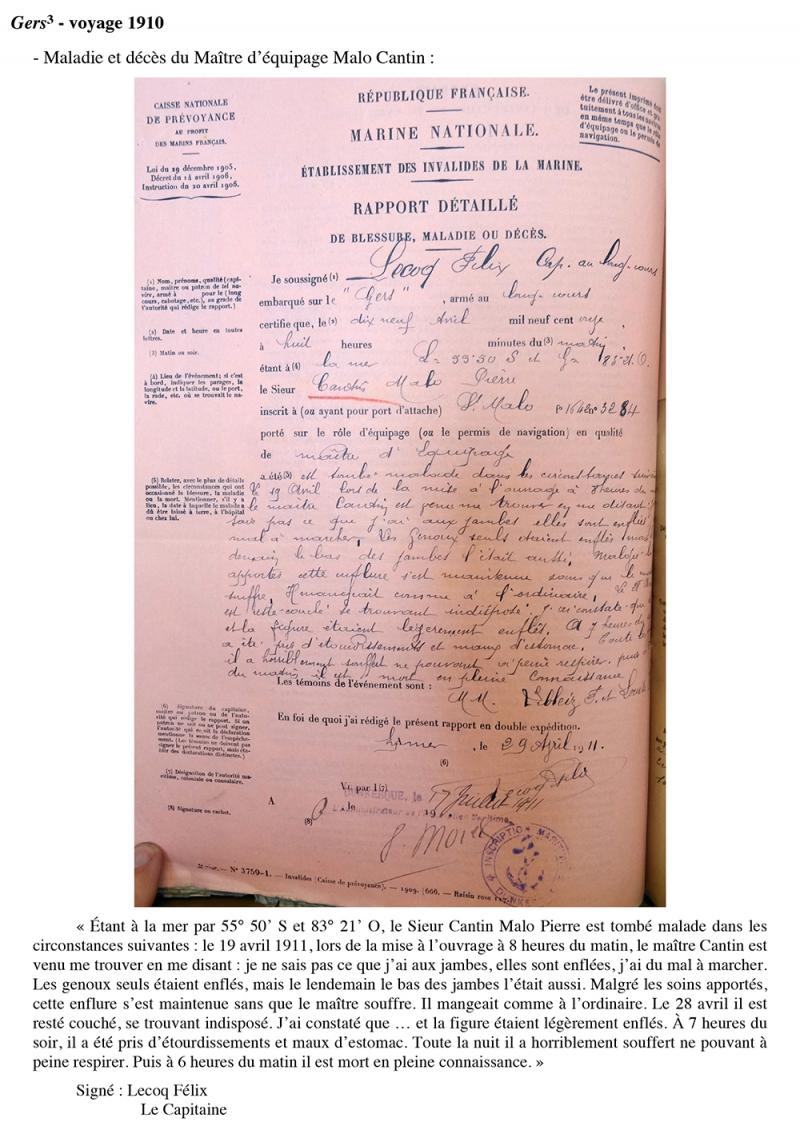 Gers³ - voyage 1910
- Maladie et décès du Maître d'équipage Malo Cantin :
CAISSE NATIONALE
DE PRÉVOYANCE
AU PROFIT
DES MARINS FRANÇAIS.
Loi du 29 décembre 1905,
Décret du 14 avril 1906,
Instruction du 20 avril 1906.
RÉPUBLIQUE FRANÇAISE.
MARINE NATIONALE.
ÉTABLISSEMENT DES INVALIDES DE LA MARINE.
RAPPORT DÉTAILLÉ
DE BLESSURE, MALADIE OU DÉCÈS.
Le présent imprimé doit
être délivré d'office et gra-
tuitement à tous les
en même temps que le rôle
d'équipage ou le permis de
navigation.
(1) Nom, prénoms, qualité (capi-
taine, maître ou patron de tel na-
vire, armé à pour le (long
cours, cabotage, etc.), ou grade de
l'autorité qui rédige le rapport.)
(2) Date et heure en toutes
lettres.
(3) Matin ou soir.
(4) Lieu de l'événement; si c'est
à bord, indiquer les parages, la
longitude et la latitude, ou le port,
la rade, etc. où se trouvait le na-
vire.
Je soussigné (1) Lecoq Félix Cap. au long-cours
embarqué sur le "Gers", armé au long-cours
certifie que, le (2) dix neuf Avril mil neuf cent onze,
à huit heures minutes du (3) matin
étant à (4) la mer L= 55·50 S et G= 83·21·O.
le Sieur Cantin Malo Pierre
inscrit à (ou ayant pour port d'attache) St Malo 3284
porté sur le rôle d'équipage (ou le permis de navigation) en qualité
de maître d'équipage
(5) Relater, avec le plus de détails
possible, les circonstances qui ont
occasionné la blessure, la maladie
ou la mort. Mentionner, s'il y a
lieu, la date à laquelle le malade a
dû être laissé à terre, à l'hôpital
ou chez lui.
a été (5) est tombé malade dans les circonstances
le 19 Avril lors de la mise à l'ouvrage à 8 heures du
le maître Cantin est venu me trouver en me disant
sais pas ce que j'ai aux jambes elles sont enflées
mal à marcher, Les Genoux seuls étaient enflés mais
demain le bas des jambes l'était aussi, Malgré
apportés cette enflure s'est maintenue sans que le
souffre, Il mangeait comme à l'ordinaire,
est resté couché se trouvant indisposé. J'ai constaté que
et la figure étaient légèrement enflés. A 7 heures du
a été pris d'étourdissements et maux d'estomac. Toute
il a horriblement souffert ne pouvant à peine respirer. puis
du matin il est mort en pleine connaissance
Les témoins de l'événement sont :
MM.
(6) Signature du capitaine,
maître ou patron ou de l'auto-
rité qui rédige le rapport. Si un
patron ne sait ou ne peut signer,
l'autorité qui reçoit la déclaration
mentionne la cause de l'empêche-
ment. (Les témoins ne doivent pas
signer le présent rapport, mais éta-
blir des déclarations distinctes.)
En foi de quoi j'ai rédigé le présent rapport en double expédition.
, le 29 Avril 1911.
(6)
Lecoq Félix
(7) Désignation de l'autorité ma-
ritime, coloniale ou consulaire.
(8) Signature ou cachet.
Vu par (7)
DUNKERQUE, le 17 Juillet 1911
A , le 19
(8)
INSCRIPTION MARITIME
N° 3759-1. — Invalides (Caisse de prévoyance). — 1909. [666. — Raisin rose
« Étant à la mer par 55° 50' S et 83° 21' O, le Sieur Cantin Malo Pierre est tombé malade dans les
circonstances suivantes : le 19 avril 1911, lors de la mise à l'ouvrage à 8 heures du matin, le maître Cantin est
venu me trouver en me disant : je ne sais pas ce que j'ai aux jambes, elles sont enflées, j'ai du mal à marcher.
Les genoux seuls étaient enflés, mais le lendemain le bas des jambes l'était aussi. Malgré les soins apportés,
cette enflure s'est maintenue sans que le maître souffre. Il mangeait comme à l'ordinaire. Le 28 avril il est
resté couché, se trouvant indisposé. J'ai constaté que … et la figure étaient légèrement enflés. À 7 heures du
soir, il a été pris d'étourdissements et maux d'estomac. Toute la nuit il a horriblement souffert ne pouvant à
peine respirer. Puis à 6 heures du matin il est mort en pleine connaissance. »
Signé : Lecoq Félix
Le Capitaine